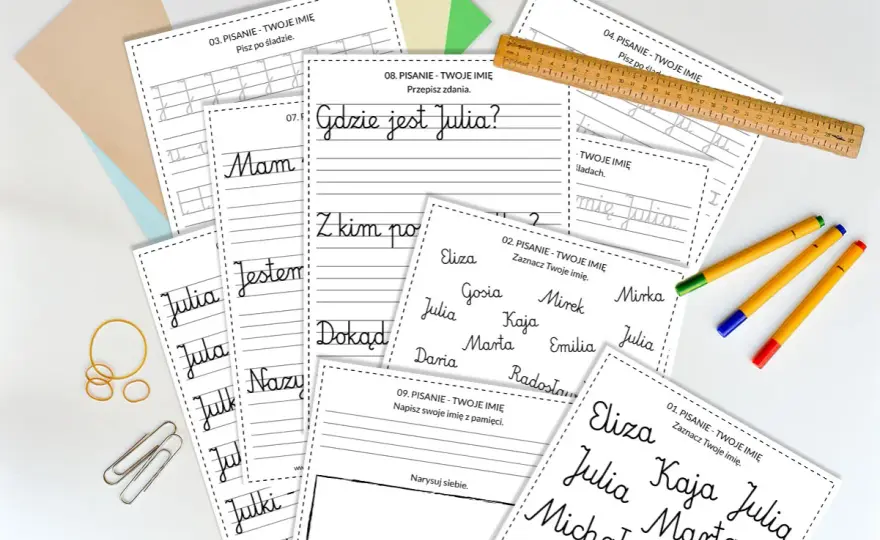 03. PISANIE - TWOJE IMIĘ
Pisz po śladzie.
04. PISANIE - TWOJE IMIĘ
Pisz po
07.
Mam
Jestem
08. PISANIE - TWOJE IMIĘ
Przepisz zdania.
Gdzie jest Julia?
Z kim
?
Dokąd
TWOJE IMIĘ
śladach.
imię Julia.
02. PISANIE - TWOJE IMIĘ
Zaznacz Twoje imię.
Eliza
Gosia
Mirek
Mirka
Julia
Kaja
Marta
Emilia
Julia
Daria
Julia
Jula
Julki -
09. PISANIE - TWOJE IMIĘ
Napisz swoje imię z pamięci.
Narysuj siebie.
01. PISANIE - TWOJE IMIĘ
Zaznacz Twoje imię.
Eliza
Kaja
Julia
Julia
Marta